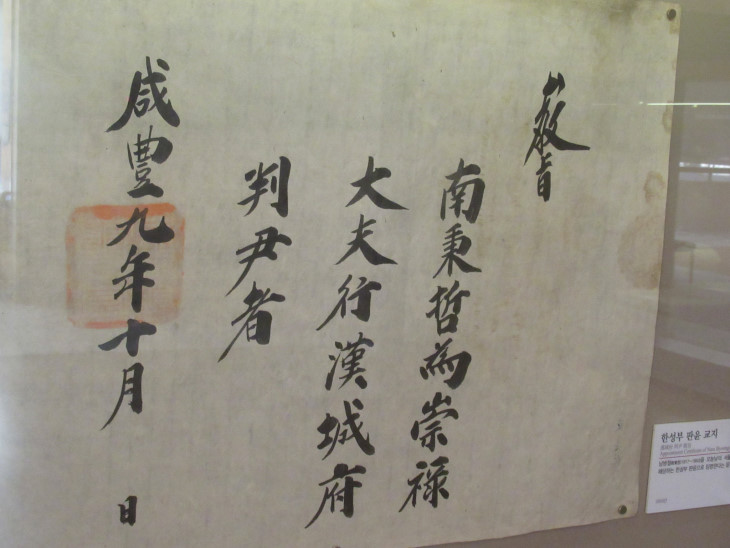 敎旨
南秉哲為崇祿
大夫行漢城府
判尹者
咸豐九年十月
日
한성부 판윤 교지